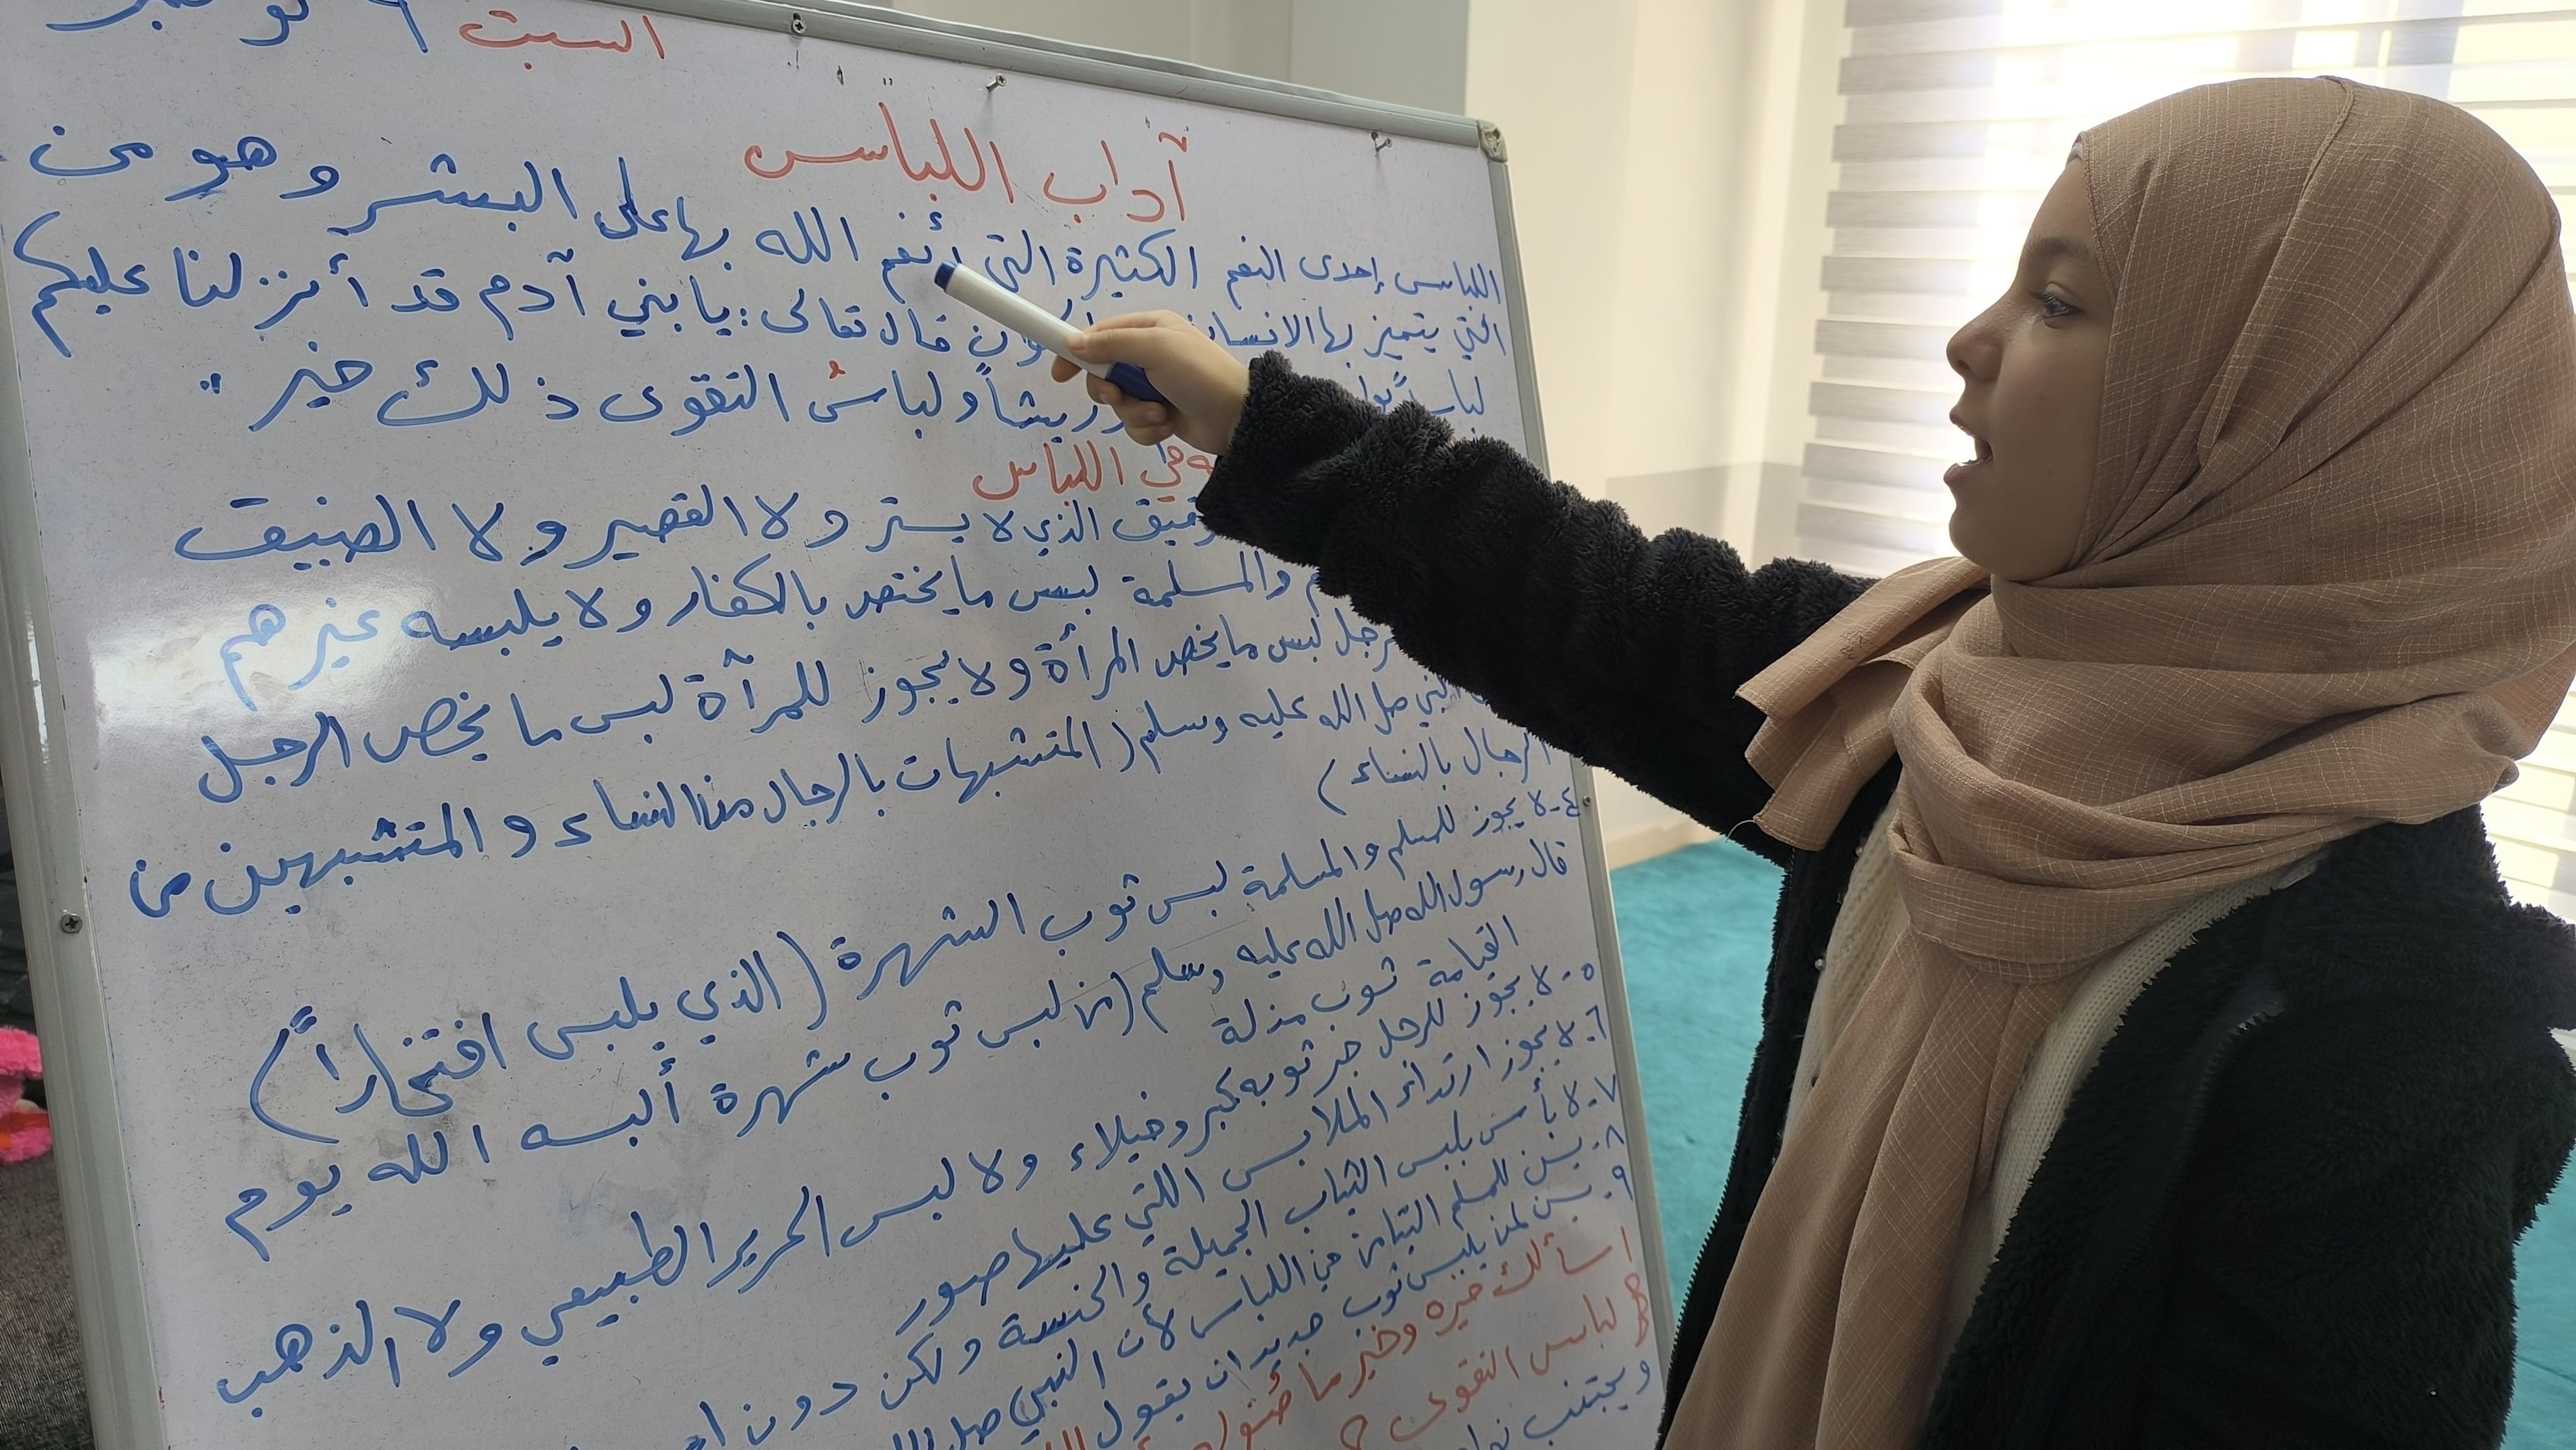 السبت ٩
آداب اللباس
اللباس إحدى النعم الكثيرة التي أنعم الله بها على البشر وهو من
التي يتميز بها الانسان قال تعالى: يا بني آدم قد أنزلنا عليكم
وريشاً ولباسُ التقوى ذلك خير "
في اللباس
الذي لا يستر ولا القصير ولا الضيق
والمسلمة لبس ما يختص بالكفار ولا يلبسه غيرهم
لبس ما يخص المرأة ولا يجوز للمرآة لبس ما يخص الرجل
النبي صل الله عليه وسلم (المتشبهات بالرجال من النساء والمتشبهين من
الرجال بالنساء)
٤- لا يجوز للمسلم والمسلمة لبس ثوب الشهرة (الذي يلبس افتخاراً)
قال رسول الله صل الله عليه وسلم (من لبس ثوب شهرة ألبسه الله يوم
القيامة ثوب مذلة
٥- لا يجوز للرجل جر ثوبه كبر وخيلاء ولا لبس الحرير الطبيعي ولا الذهب
٦- لا يجوز ارتداء الملابس اللتي عليها صور
٧- لا بأس بلبس الثياب الجميلة والحسنة ولكن دون
٨- يسن للمسلم التيامن في اللباس لأن النبي صل
٩- يسن لمن يلبس ثوب جديد ان يقول
اسألك خيره وخير ما
لباس التقوى
ويجتنب